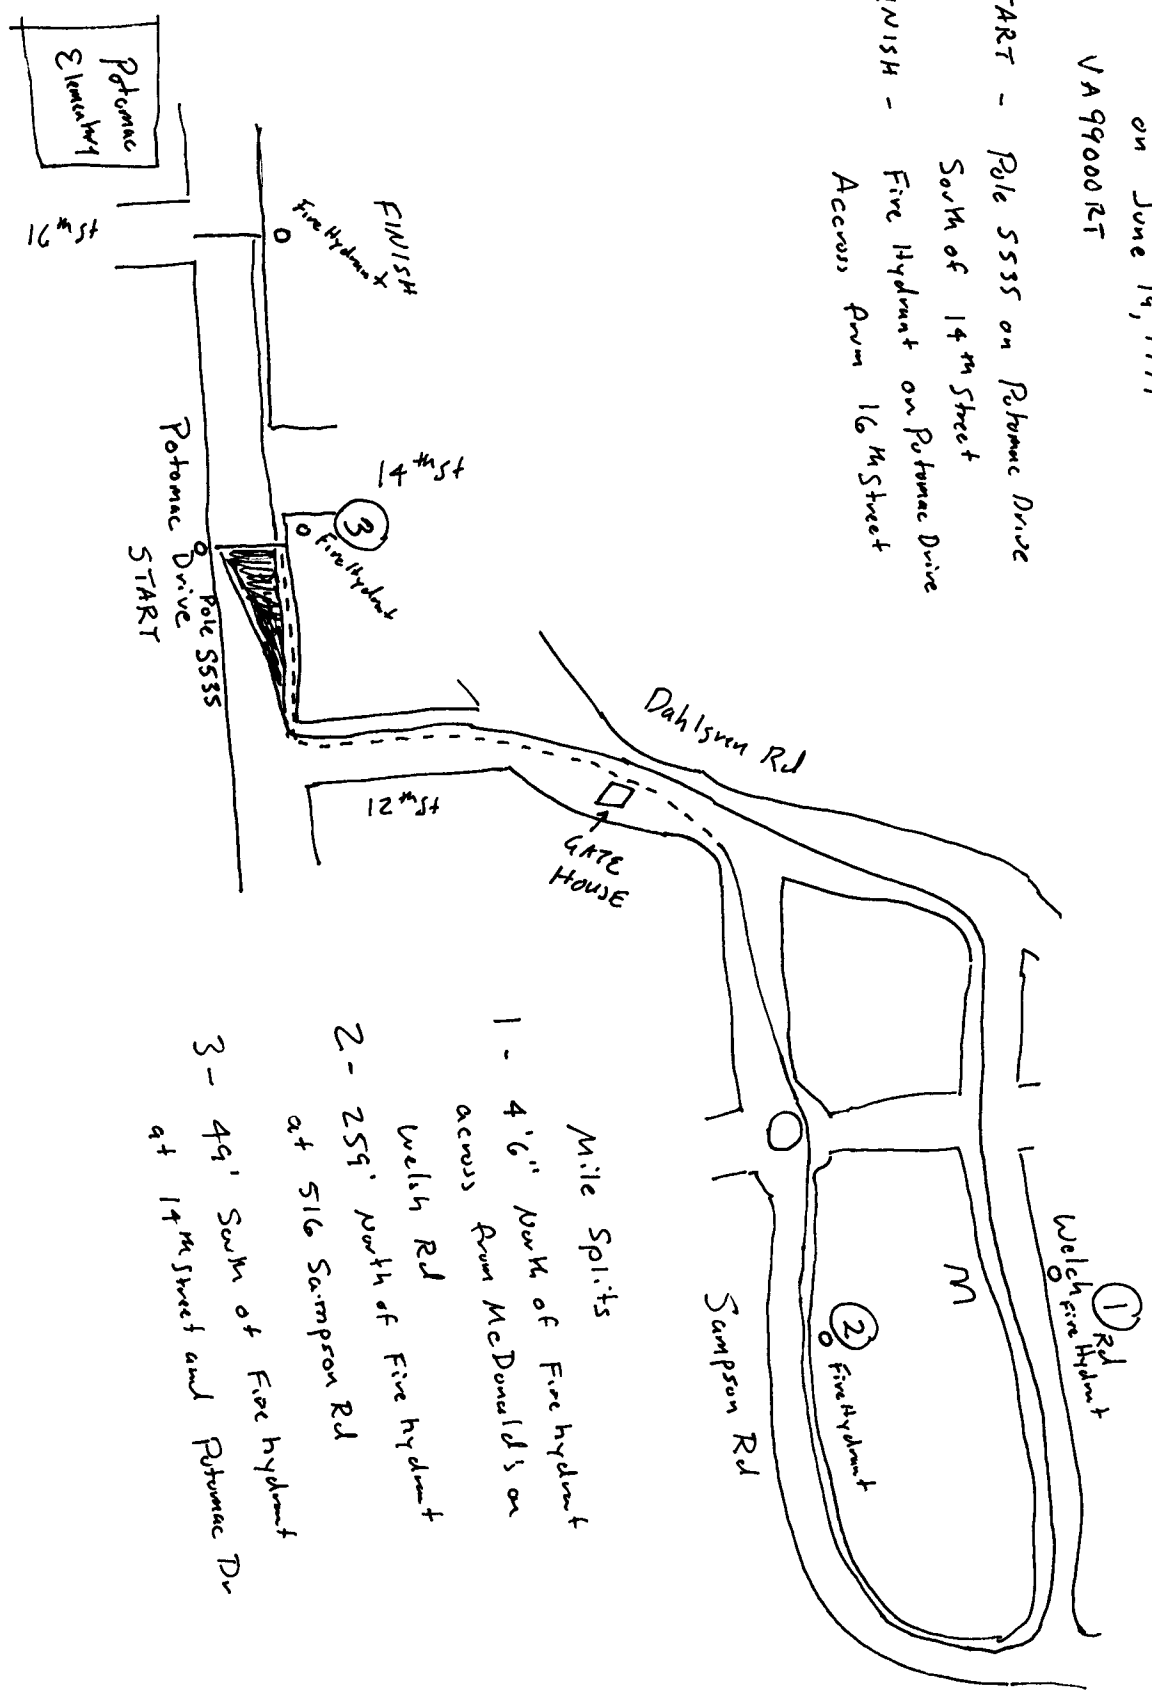 on June 19,
VA99000RT
ART - Pole 5535 on Potomac Drive
South of 14th Street
INISH - Fire Hydrant on Potomac Drive
Accross from 16th Street
Potomac
Elementary
16th St
FINISH
Fire Hydrant
14th St
3
Fire Hydrant
Potomac Drive
Pole 5535
START
12th St
Dahlgren Rd
GATE
HOUSE
1
Welch Rd
Fire Hydrant
M
2
Fire Hydrant
Sampson Rd
Mile Splits
1 - 4'6" North of Fire hydrant
across from McDonald's on
Welsh Rd
2 - 259' North of Fire hydrant
at 516 Sampson Rd
3 - 49' South of Fire hydrant
at 14th Street and Potomac Dr